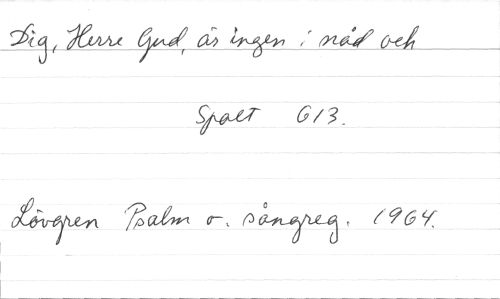 Dig, Herre Gud, är ingen i nåd och
Spalt 613.
Lövgren Psalm o. sångreg. 1964.